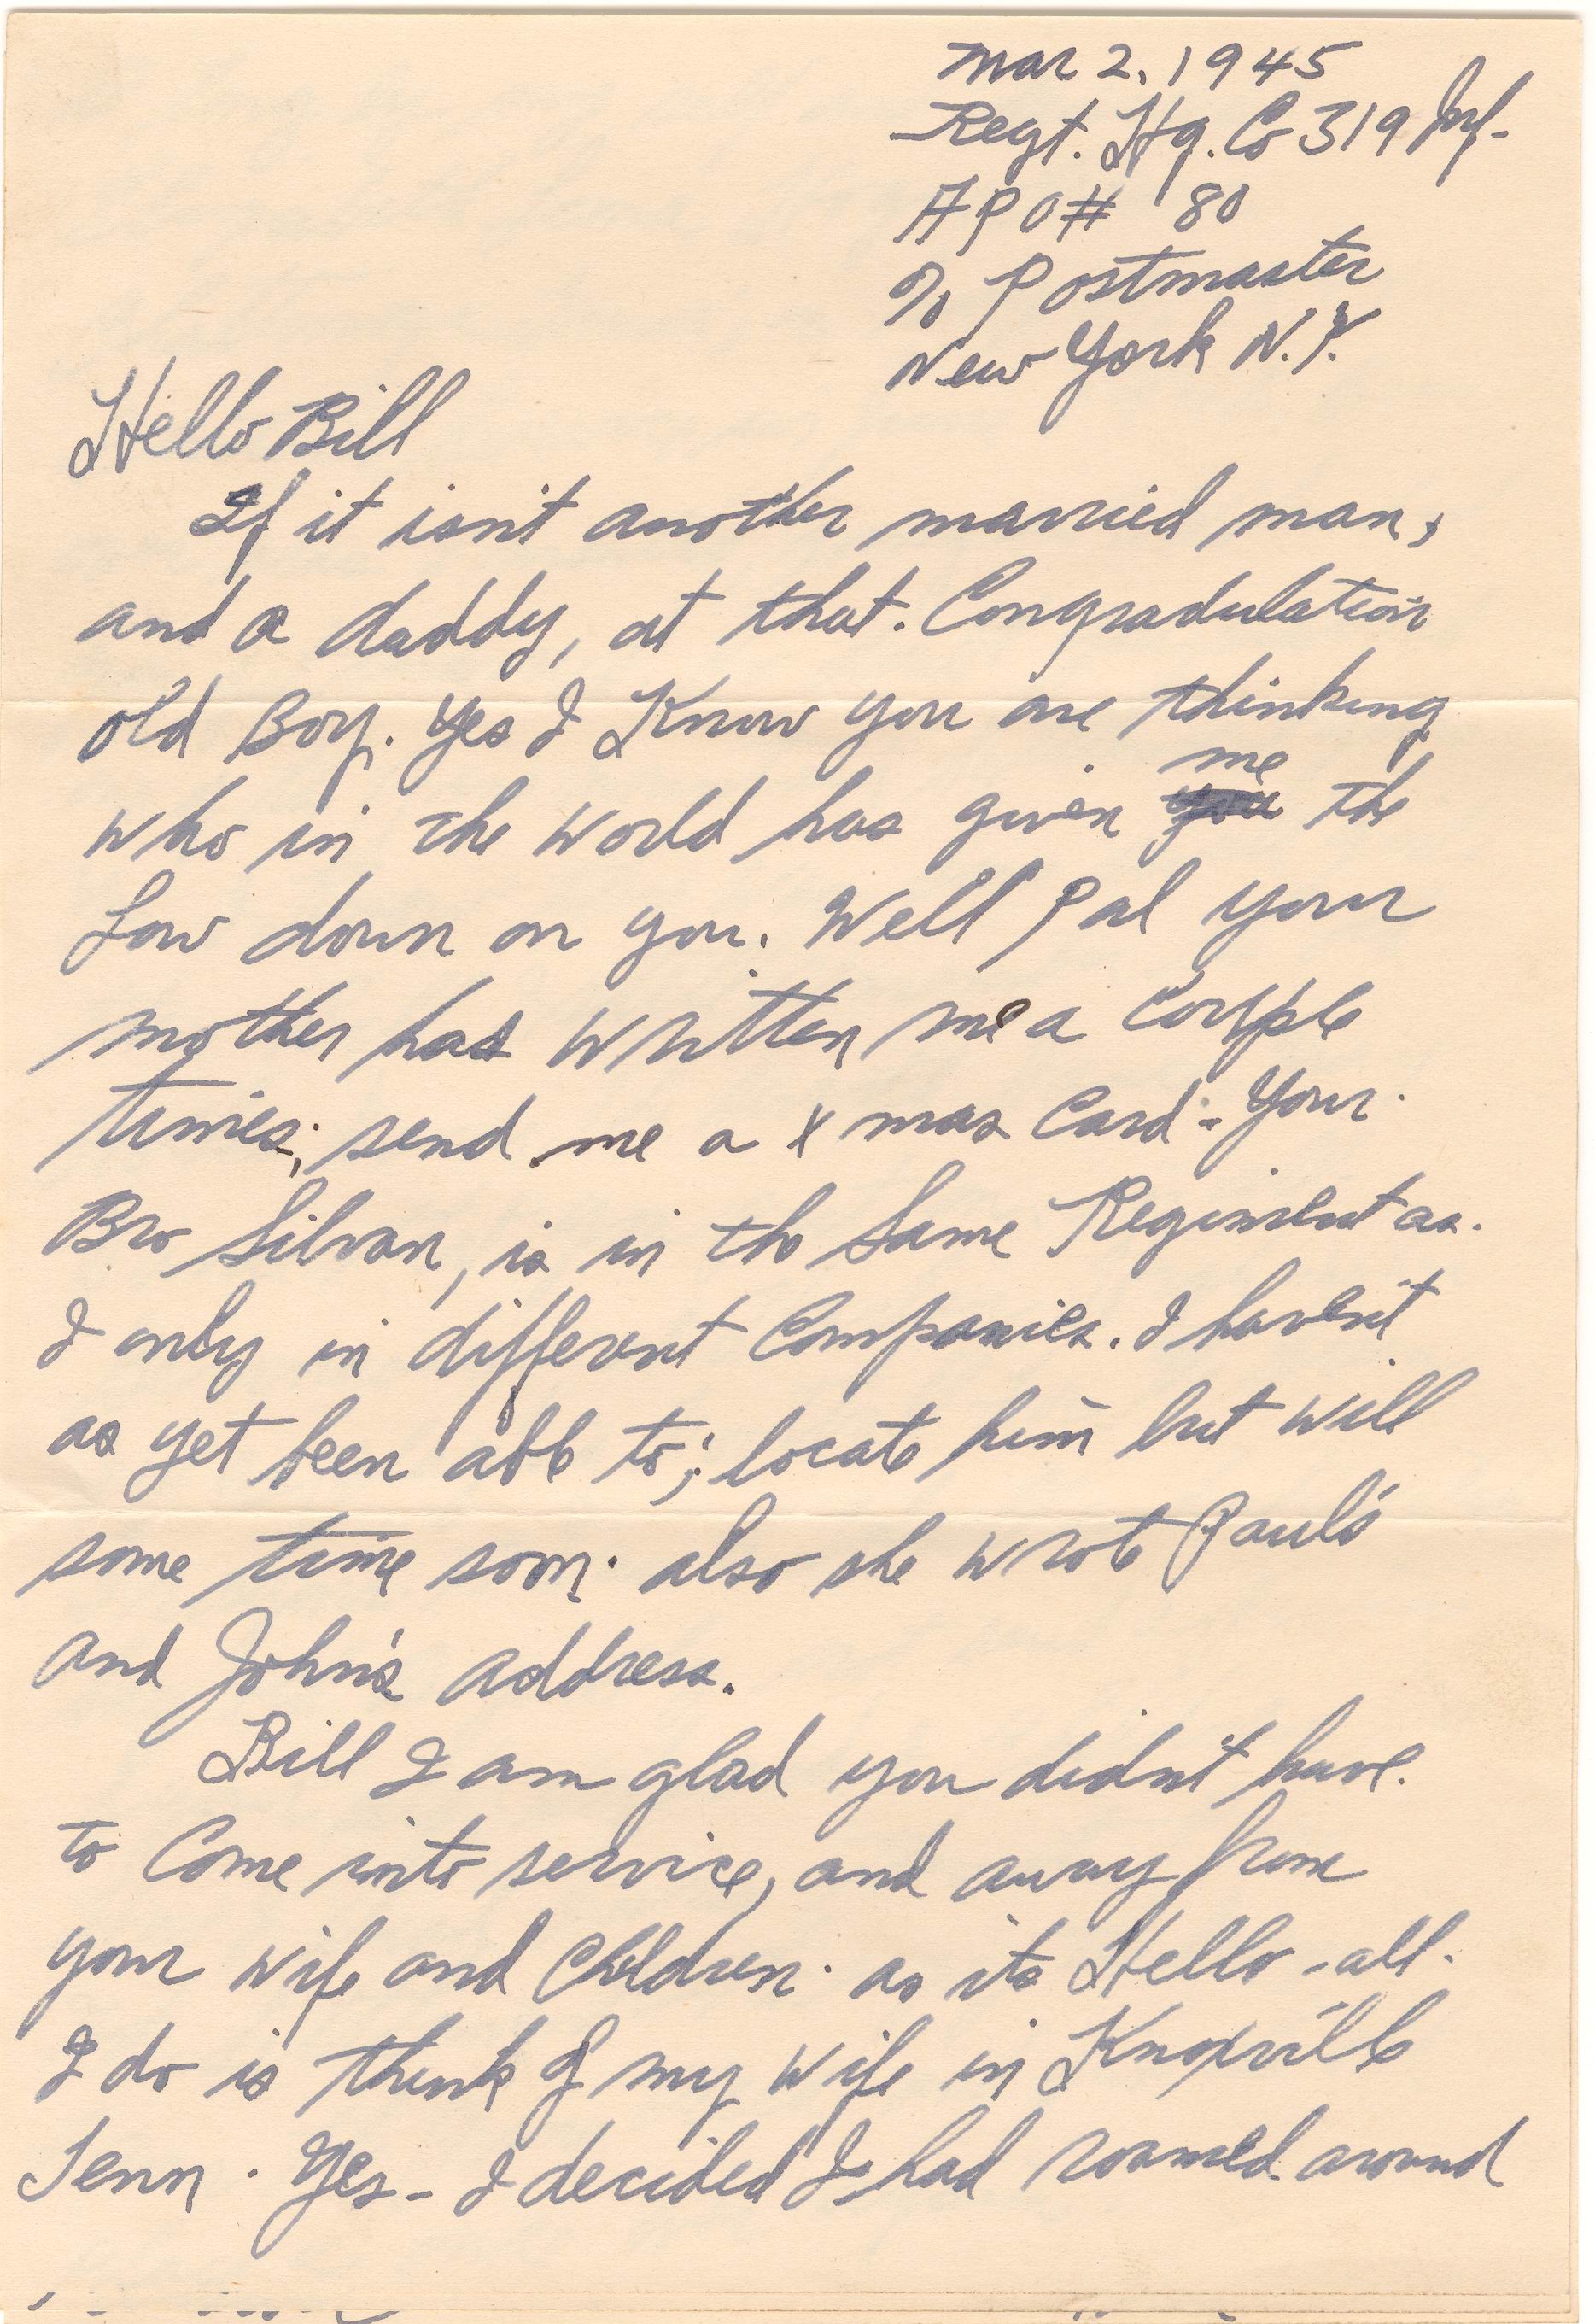 Mar 2, 1945
Regt. Hq. Co 319 Inf-
APO# 80
c/o Postmaster
New York N.Y.
Hello Bill
If it isn't another married man,
and a daddy, at that. Congradulation
old Boy. Yes I Know you are thinking
me
who in the world has given you the
Low down on you. Well Pal your
mother has written me a couple
times; send me a Xmas Card - Your
Bro Silvan, is in the same Regiment as
I only in different Companies. I haven't
as yet been able to; locate him but will
some time soon. also she wrote Paul's
and John's address.
Bill I am glad you didn't have
to Come into service, and away from
your wife and Children. as its Hello - all
I do is think of my wife in Knoxville
Tenn. Yes - I decided I had roamed around